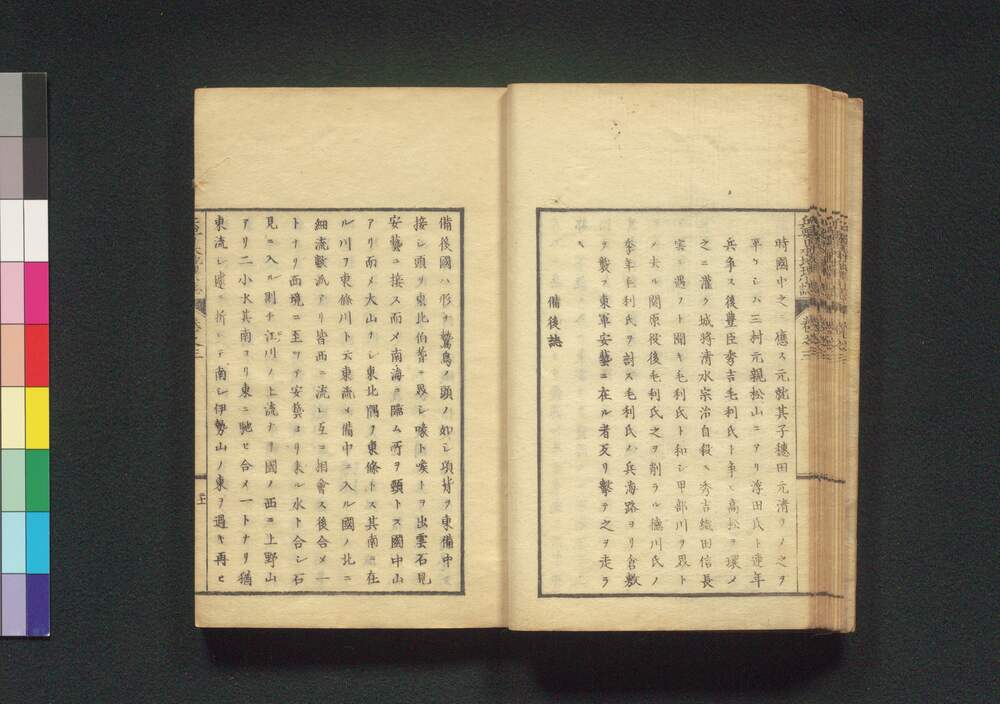 時國中之ニ應ス元就其子穗田元清ヲノ之ヲ
平ケシム三村元親松山ニアリ浮田氏ト連年
兵爭ス後豊臣秀吉毛利氏ト爭ヒ高松ヲ環メ
之ニ灌ク城將清水宗治自殺ス秀吉織田信長
害ニ遇フト聞キ毛利氏ト和シ甲部川ヲ界ト
ノ去ル關原役後毛利氏之ヲ削ラル德川氏ノ
季年毛利氏ヲ討ス毛利氏ノ兵海路ヨリ倉敷
ヲ襲フ東軍安藝ニ在ル者反リ擊テ之ヲ走ラ
ス
備後誌
備後國ハ形チ鷲鳥ノ頭ノ如シ項背ヲ東備中ニ
接シ頭ヲ東北伯耆ニ界シ喙ト喉トヲ出雲石見
安藝ニ接ス而メ南海ニ臨ム所ヲ頸トス國中山
アリ而メ大山ナシ東北隅ヲ東條トス其南ニ在
ル川ヲ東條川ト云東流メ備中ニ入ル國ノ北ニ
細流數派アリ皆西ニ流レ互ニ相會ス後合メ一
トナリ西境ニ至リテ安藝ヨリ來ル水ト合シ石
見ニ入ル則チ江川ノ上流ナリ國ノ西ニ上野山
アリ二小水其南ヨリ東ニ馳セ合メ一トナリ猶
東流シ折レテ南シ伊勢山ノ東ヲ過キ再ヒ